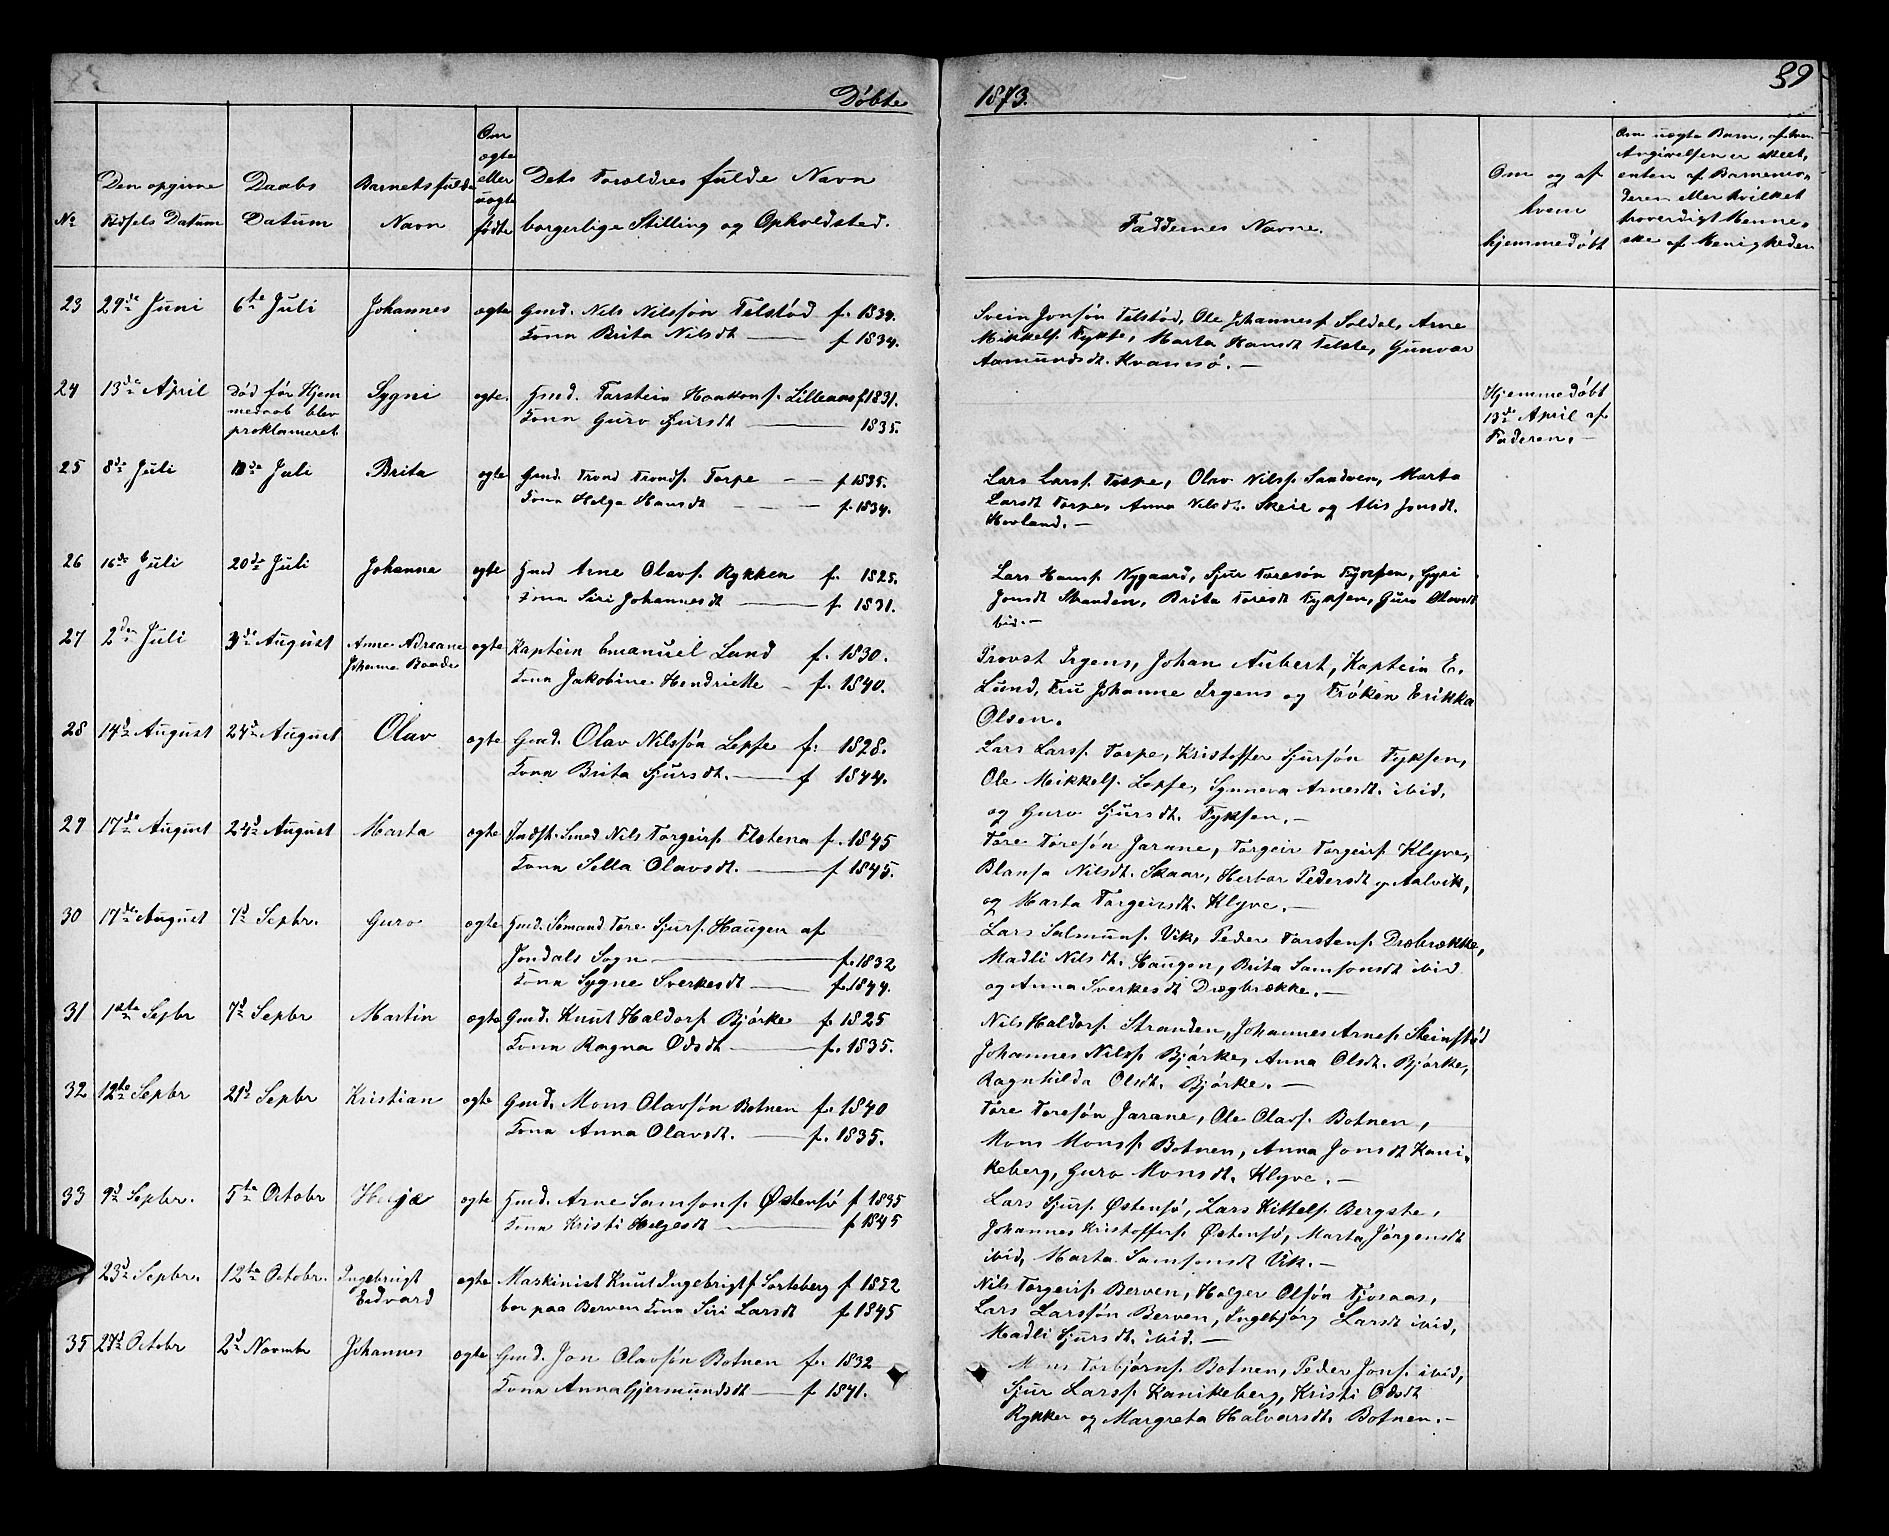 Døbte 1873. 39
No
Den opgivne Fødsels Datum
Daabs Datum
Barnets fulde Navn
Om ægte eller uægte født
Dets Forældres fulde Navn borgerlige Stilling og Opholdsted.
Faddernes Navne.
Om og af hvem hjemmedøbt
Om uægte Barn, af hvem Angivelsen er skeet, enten af Barnemoderen eller hvilket troverdigt Menneske af Menigheden
23 29de Juni 6te Juli Johannes ægte Gmd. Nils Nilssøn Telstød f. 1834.
Kona Brita Nilsdt f 1834.
Svein Jonsøn Telstød, Ole Johannesf. Soldal, Arne
Mikkelf. Tykse, Marta Hansdt Telste, Gunvor
Aamundsdt. Kvamsø.
24 13de April Død før Hjem ægte. Gmd. Torstein Haakonf. Lilleaas f 1831.
Sygni
medaab blev
proklameret
Kona Guro Sjursdt 1835.
Hjemmedøbt
13de April af
Faderen.
25 8de Juli 13de Juli Brita ægte Gmd. Trond Trondf. Torpe f 1835.
Kona Helga Hansdt f. 1834.
Lars Larsf. Torpe, Olav Nilsf. Sandven, Marta
Larsdt Torpe, Anna Nilsdt. Skeie og Alis Jonsdt.
Hovland.
26 16de Juli 20de Juli Johanna ægte Gmd Arne Olavf. Rykken f. 1825.
Kona Siri Johannesdt f 1831.
Lars Hansf. Nygaard, Sjur Toresøn Tyksen, Gyri
Jonsdt Stranden, Brita Toresdt Tyksen, Guro Olavsdt
ibid.
27 2den Juli 3de August Anne Adreane ægte Kaptein Emanuel Lund f. 1830.
Johanne
Kona Jakobine Hendriette f. 1840.
Provst Irgens, Johan Aubert, Kaptein E.
Lund, Fru Johanne Irgens og Frøken Erikka
Olsen.
28 14d August 24d August Olav ægte Gmd. Olav Nilssøn Lepse f: 1828.
Kona Brita Sjursdt. f 1844.
Lars Larsf. Torpe, Kristoffer Sjursøn Tyksen,
Ole Mikkelf. Lepse, Synneva Arnesdt. ibid,
og Guro Sjursdt. Tyksen.
29 17de August 24d August Marta ægte Indst. Smed Nils Torgeirf. Flotena f. 1845
Kona Sella Olavsdt. f 1845.
Tore Toresøn Jarane, Torgeir Torgeirf. Klyve,
Blansa Nilsdt. Skaar, Herbor Pedersdt Aalvik,
og Marta Torgeirsdt. Klyve.
30 17de August 7d Sepbr. Guro ægte Gmd. Sømand Tore Sjurf. Haugen af
Jondals Sogn f. 1832
Kona Sygne Sverkesdt f. 1844.
Lars Salmunf. Vik, Peder Torstenf. Drebrekke,
Madli Nilsdt. Haugen, Brita Samsonsdt ibid
og Anna Sverkesdt Drægbrekke.
31 1ste Sepbr 7d Sepbr Martin ægte Gmd. Knut Haldorf. Bjørke f. 1825
Kona Ragna Odsdt f. 1835.
Nils Haldorf. Stranden, Johannes Arnef. Steinstød
Johannes Nilsf. Bjørke, Anna Olsdt. Bjørke,
Ragnhilda Olsdt. Bjørke.
32 12te Sepbr 21d Sepbr Kristian ægte Gmd. Mons Olavsøn Botnen f. 1840
Kona Anna Olavsdt. f. 1835.
Tore Toresøn Jarane, Ole Olavf. Botnen,
Mons Monsf. Botnen, Anna Jonsdt Kani-
keberg, Guro Monsdt. Klyve.
33 9d Sepbr. 5te Octobr Helje ægte Gmd. Arne Samsonf. Østensø f 1835
Kona Kristi Helgesdt f 1845
Lars Sjurf. Østensø, Lars Kittelf. Bergste,
Johannes Kristofferf. Østensø, Marta Jørgensdt
ibid, Marta Samsonsdt Vik.
23d Sepbr. 12te Octobr. Ingebrigt ægte Maskinist Knut Ingebrigtf Sorteberg f 1852
Edvard bor paa Berven Kona Siri Larsdt f 1845
Nils Torgeirf. Berven, Holger Olsøn Tjosaas,
Lars Larssøn Berven, Ingebjørg Larsdt ibid,
Madli Sjursdt. ibid.
35 27d Octobr 2d Novmbr Johannes ægte Gmd. Jon Olavsøn Botnen f. 1832
Kona Anna Gjermundsdt f 1841.
Mons Torbjørnf. Botnen, Peder Jonf. ibid,
Sjur Larsf. Kanikeberg, Kristi Odsdt
Rykker og Margreta Halvarsdt. Botnen.